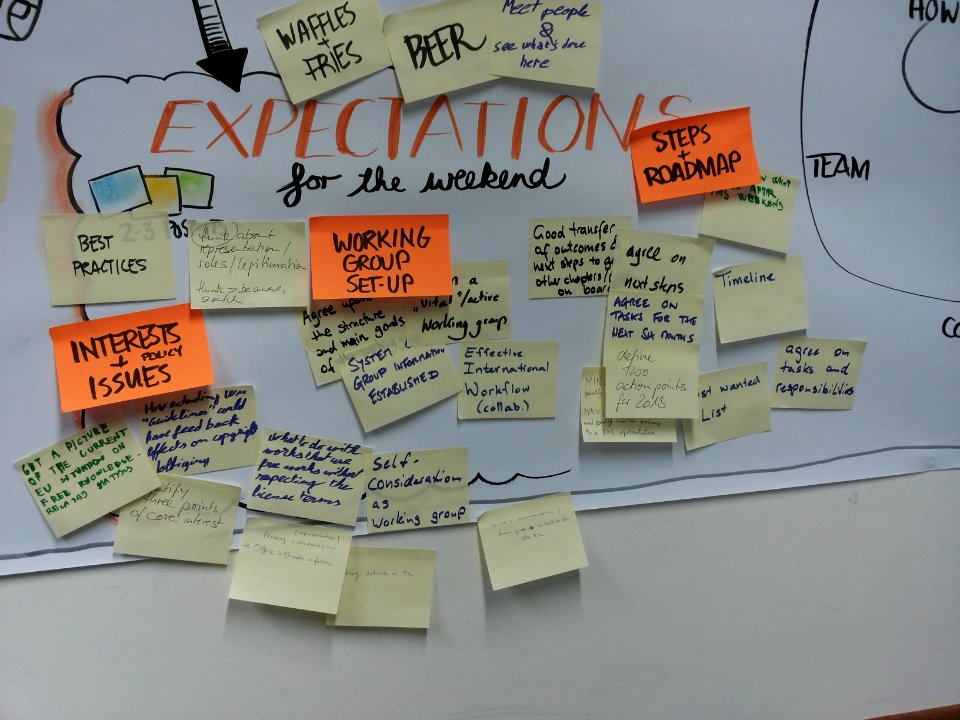 HOW
WAFFLES
+
FRIES
BEER
Meet people
&
see what's done
here
EXPECTATIONS
for the weekend
TEAM
STEPS
+
ROADMAP
THIS WEEKEND
2-3
BEST
PRACTICES
(think) about
representation/
roles/legitimation
WORKING
GROUP
SET-UP
Agree upon
the structure
and main goals
of
a
"vital"/active
working group
SYSTEM
GROUP INFORMATION
ESTABLISHED
Effective
International
Workflow
(collab.)
Self-
consideration
as
working group
INTERESTS
+ POLICY
ISSUES
GET A PICTURE
OF THE CURRENT
EU SITUATION ON
FREE KNOWLEDGE-
RELATED MATTERS
"Guidelines" could
have feed back
effects on copyright
three points
of core interest
what to do with
works that use
free works without
respecting the
license terms
Good transfer
of outcomes
next steps to
other chapters/
on board
agree on
next steps
AGREE ON
TASKS FOR THE
NEXT SIX MONTHS
define
two
action points
for 2013
Timeline
agree on
tasks and
responsibilities
st wanted
List